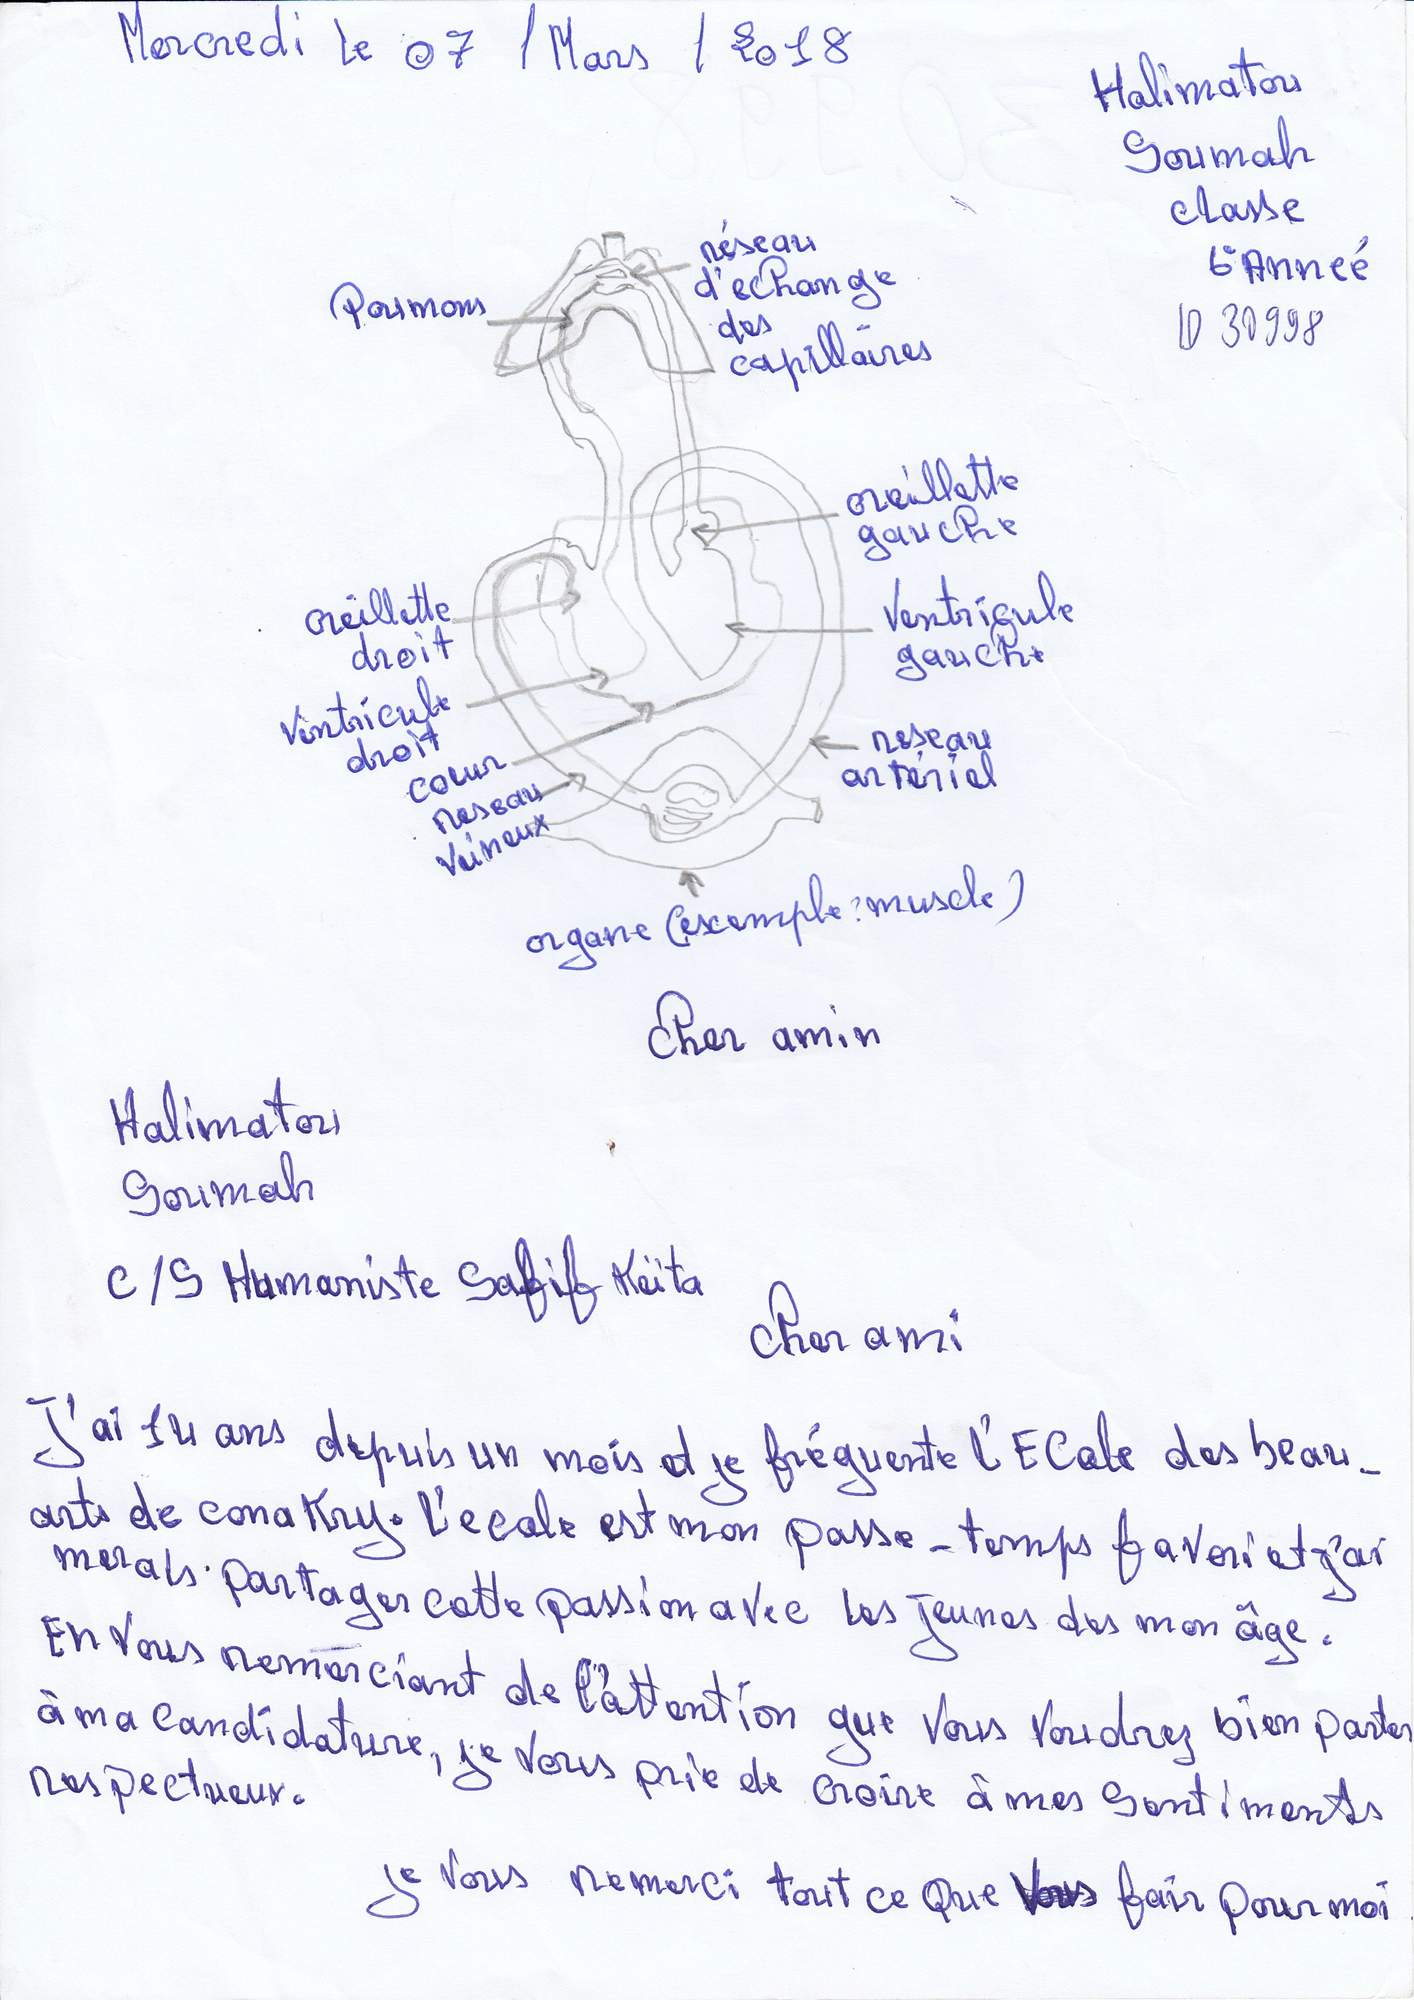 Mercredi le 07 / Mars / 2018
Halimatou
Soumah
classe
6e Anneé
ID 30998
réseau
d'echange
des
capillaires
Poumons
oreillette
gauche
oreillette
droit
Ventrigule
gauche
Ventricule
droit
coeur
reseau
artériel
reseau
veineux
organe (exemple: muscle)
Cher amin
Halimatou
Soumah
C/S Humaniste Safif Keita
Cher ami
J'ai 14 ans depuis un mois et je fréquente l'ECole des beau-
arts de conakry. l'ecole est mon passe-temps favori et j'ai
merais. partager cette passion avec les jeunes des mon âge.
En vous remerciant de l'attention que vous voudrez bien porter
à ma candidature, je vous prie de croire à mes sentiments
respectueux.
je vous remerci tout ce que vous fair pour moi